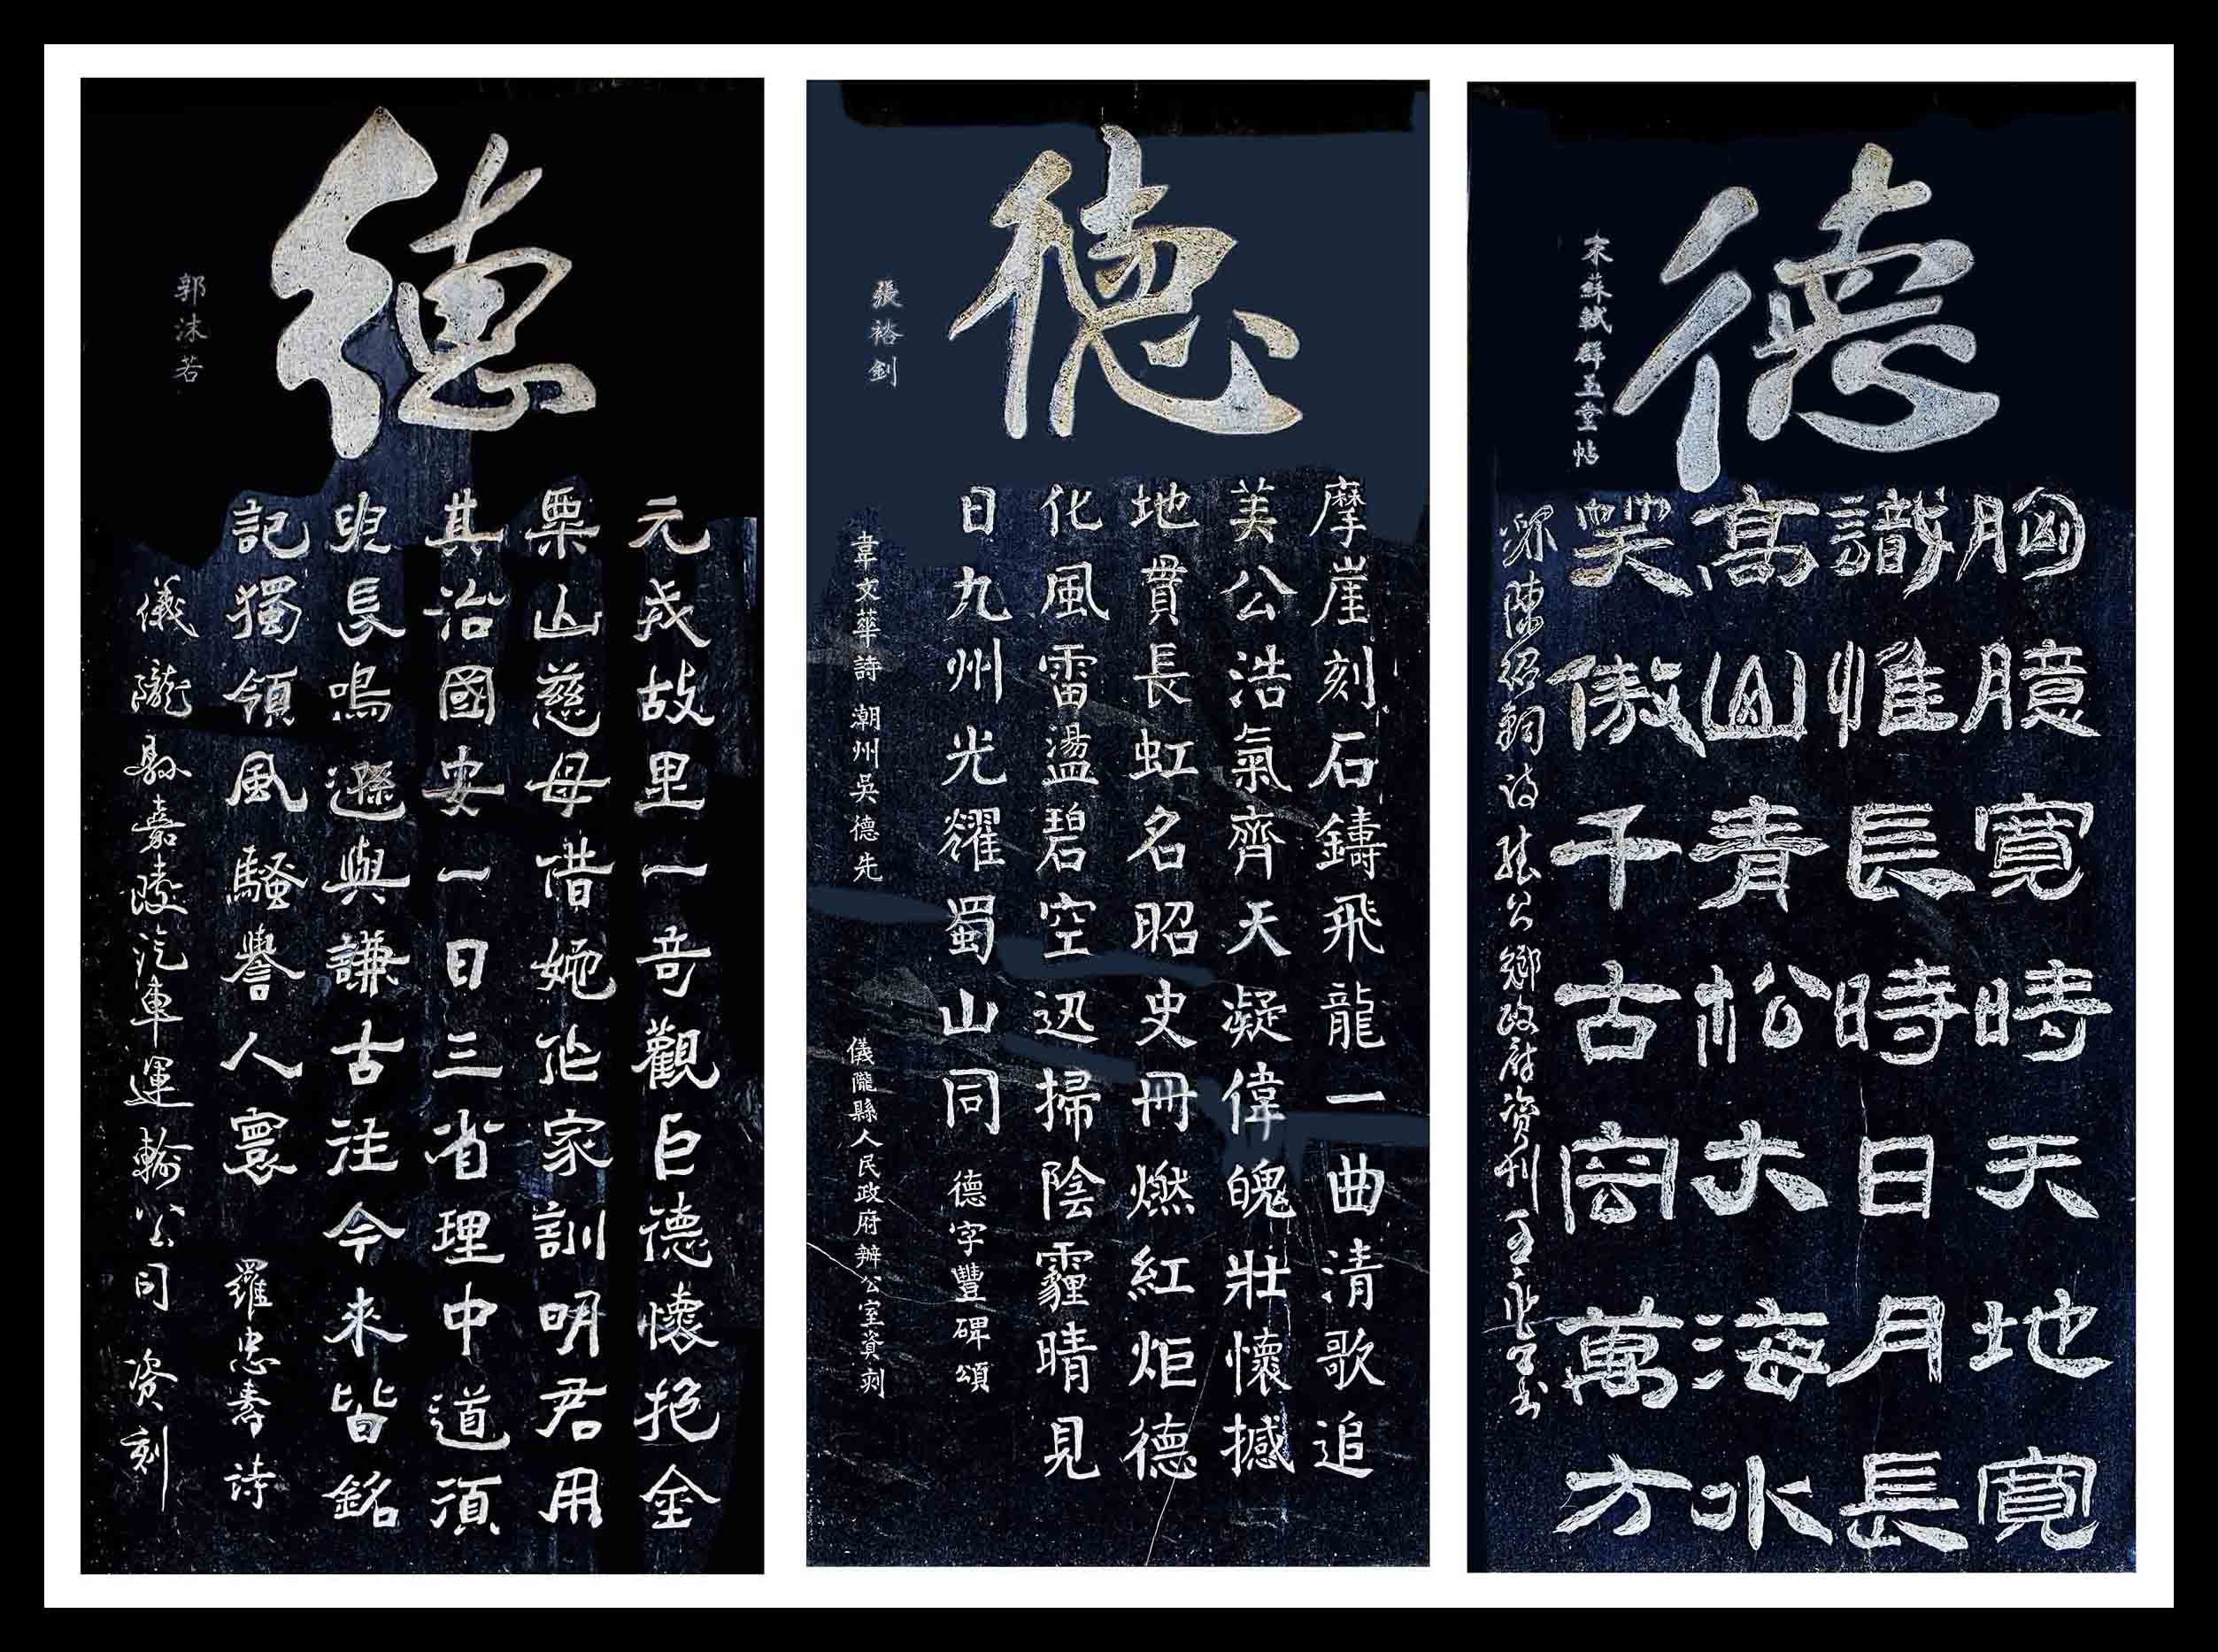 德
宋蘇軾群玉堂帖
胸臆寬時天地寬
識惟長時日月長
高青松大海水
笑傲千古萬方
陳紹詩 張公鄉政府资刊 王書
德
張裕釗
摩崖刻石鑄飛龍一曲清歌追
美公浩氣齊天凝偉魄壯懷撼
地貫長虹名昭史冊燃紅炬德
化風雷盪碧空迅掃陰霾晴見
日九州光耀蜀山同 德字豐碑頌
韋文華詩 潮州吳德先 儀隴縣人民政府辦公室資刻
德
郭沫若
元戎故里一奇觀巨德懷抱金
粟山慈母借她作家訓明君用
其治國安一日三省理中道須
明長鳴遜與謙古往今来皆銘
記獨領風騷譽人寰 羅忠壽诗
儀隴縣嘉陵汽車運輸公司资刻